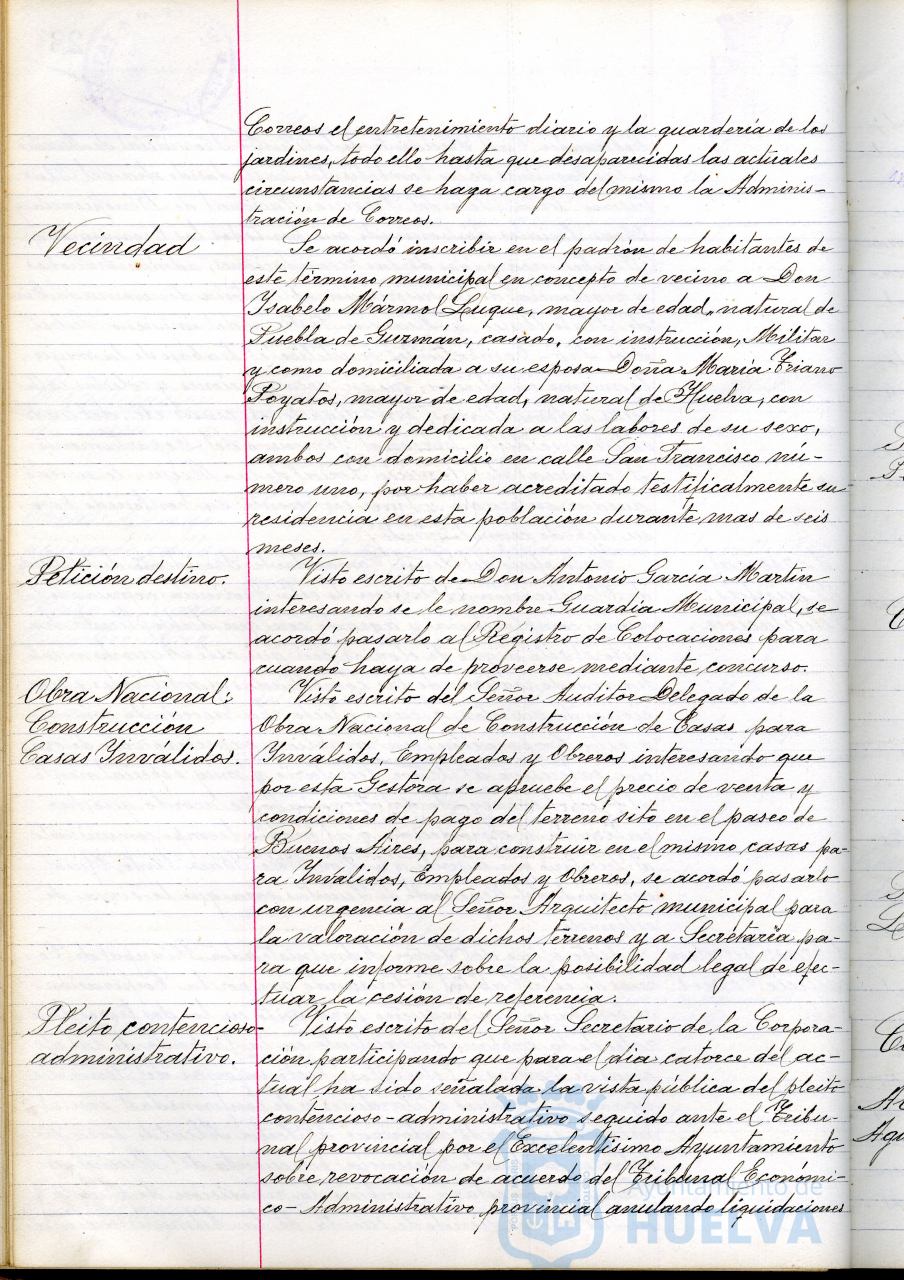 Correos el entretenimiento diario y la guardería de los
jardines, todo ello hasta que desaparecidas las actuales
circunstancias se haga cargo del mismo la Adminis-
tración de Correos.
Vecindad
Se acordó inscribir en el padrón de habitantes de
este término municipal en concepto de vecino a Don
Isabelo Mármol Luque, mayor de edad, natural de
Puebla de Guzmán, casado, con instrucción, Militar
y como domiciliada a su esposa Doña María Triano
Poyatos, mayor de edad, natural de Huelva, con
instrucción y dedicada a las labores de su sexo,
ambos con domicilio en calle San Francisco nú-
mero uno, por haber acreditado testificalmente su
residencia en esta población durante mas de seis
meses.
Petición destino.
Visto escrito de Don Antonio García Martín
interesando se le nombre Guardia Municipal, se
acordó pasarlo al Registro de Colocaciones para
cuando haya de proveerse mediante concurso.
Obra Nacional:
Construcción
Casas Inválidos.
Visto escrito del Señor Auditor Delegado de la
Obra Nacional de Construcción de Casas para
Inválidos, Empleados y Obreros interesando que
por esta Gestora se apruebe el precio de venta y
condiciones de pago del terreno sito en el paseo de
Buenos Aires, para construir en el mismo casas pa-
ra Inválidos, Empleados y Obreros, se acordó pasarlo
con urgencia al Señor Arquitecto municipal para
la valoración de dichos terrenos y a Secretaría pa-
ra que informe sobre la posibilidad legal de efec-
tuar la cesión de referencia.
Pleito contencioso-
administrativo.
Visto escrito del Señor Secretario de la Corpora-
ción participando que para el dia catorce del ac-
tual ha sido señalada la vista pública del pleito
contencioso-administrativo seguido ante el Tribu-
nal provincial por el Excelentísimo Ayuntamiento
sobre revocación de acuerdo del Tribunal Económi-
co-Administrativo provincial anulando liquidaciones
Ayuntamiento de
HUELVA